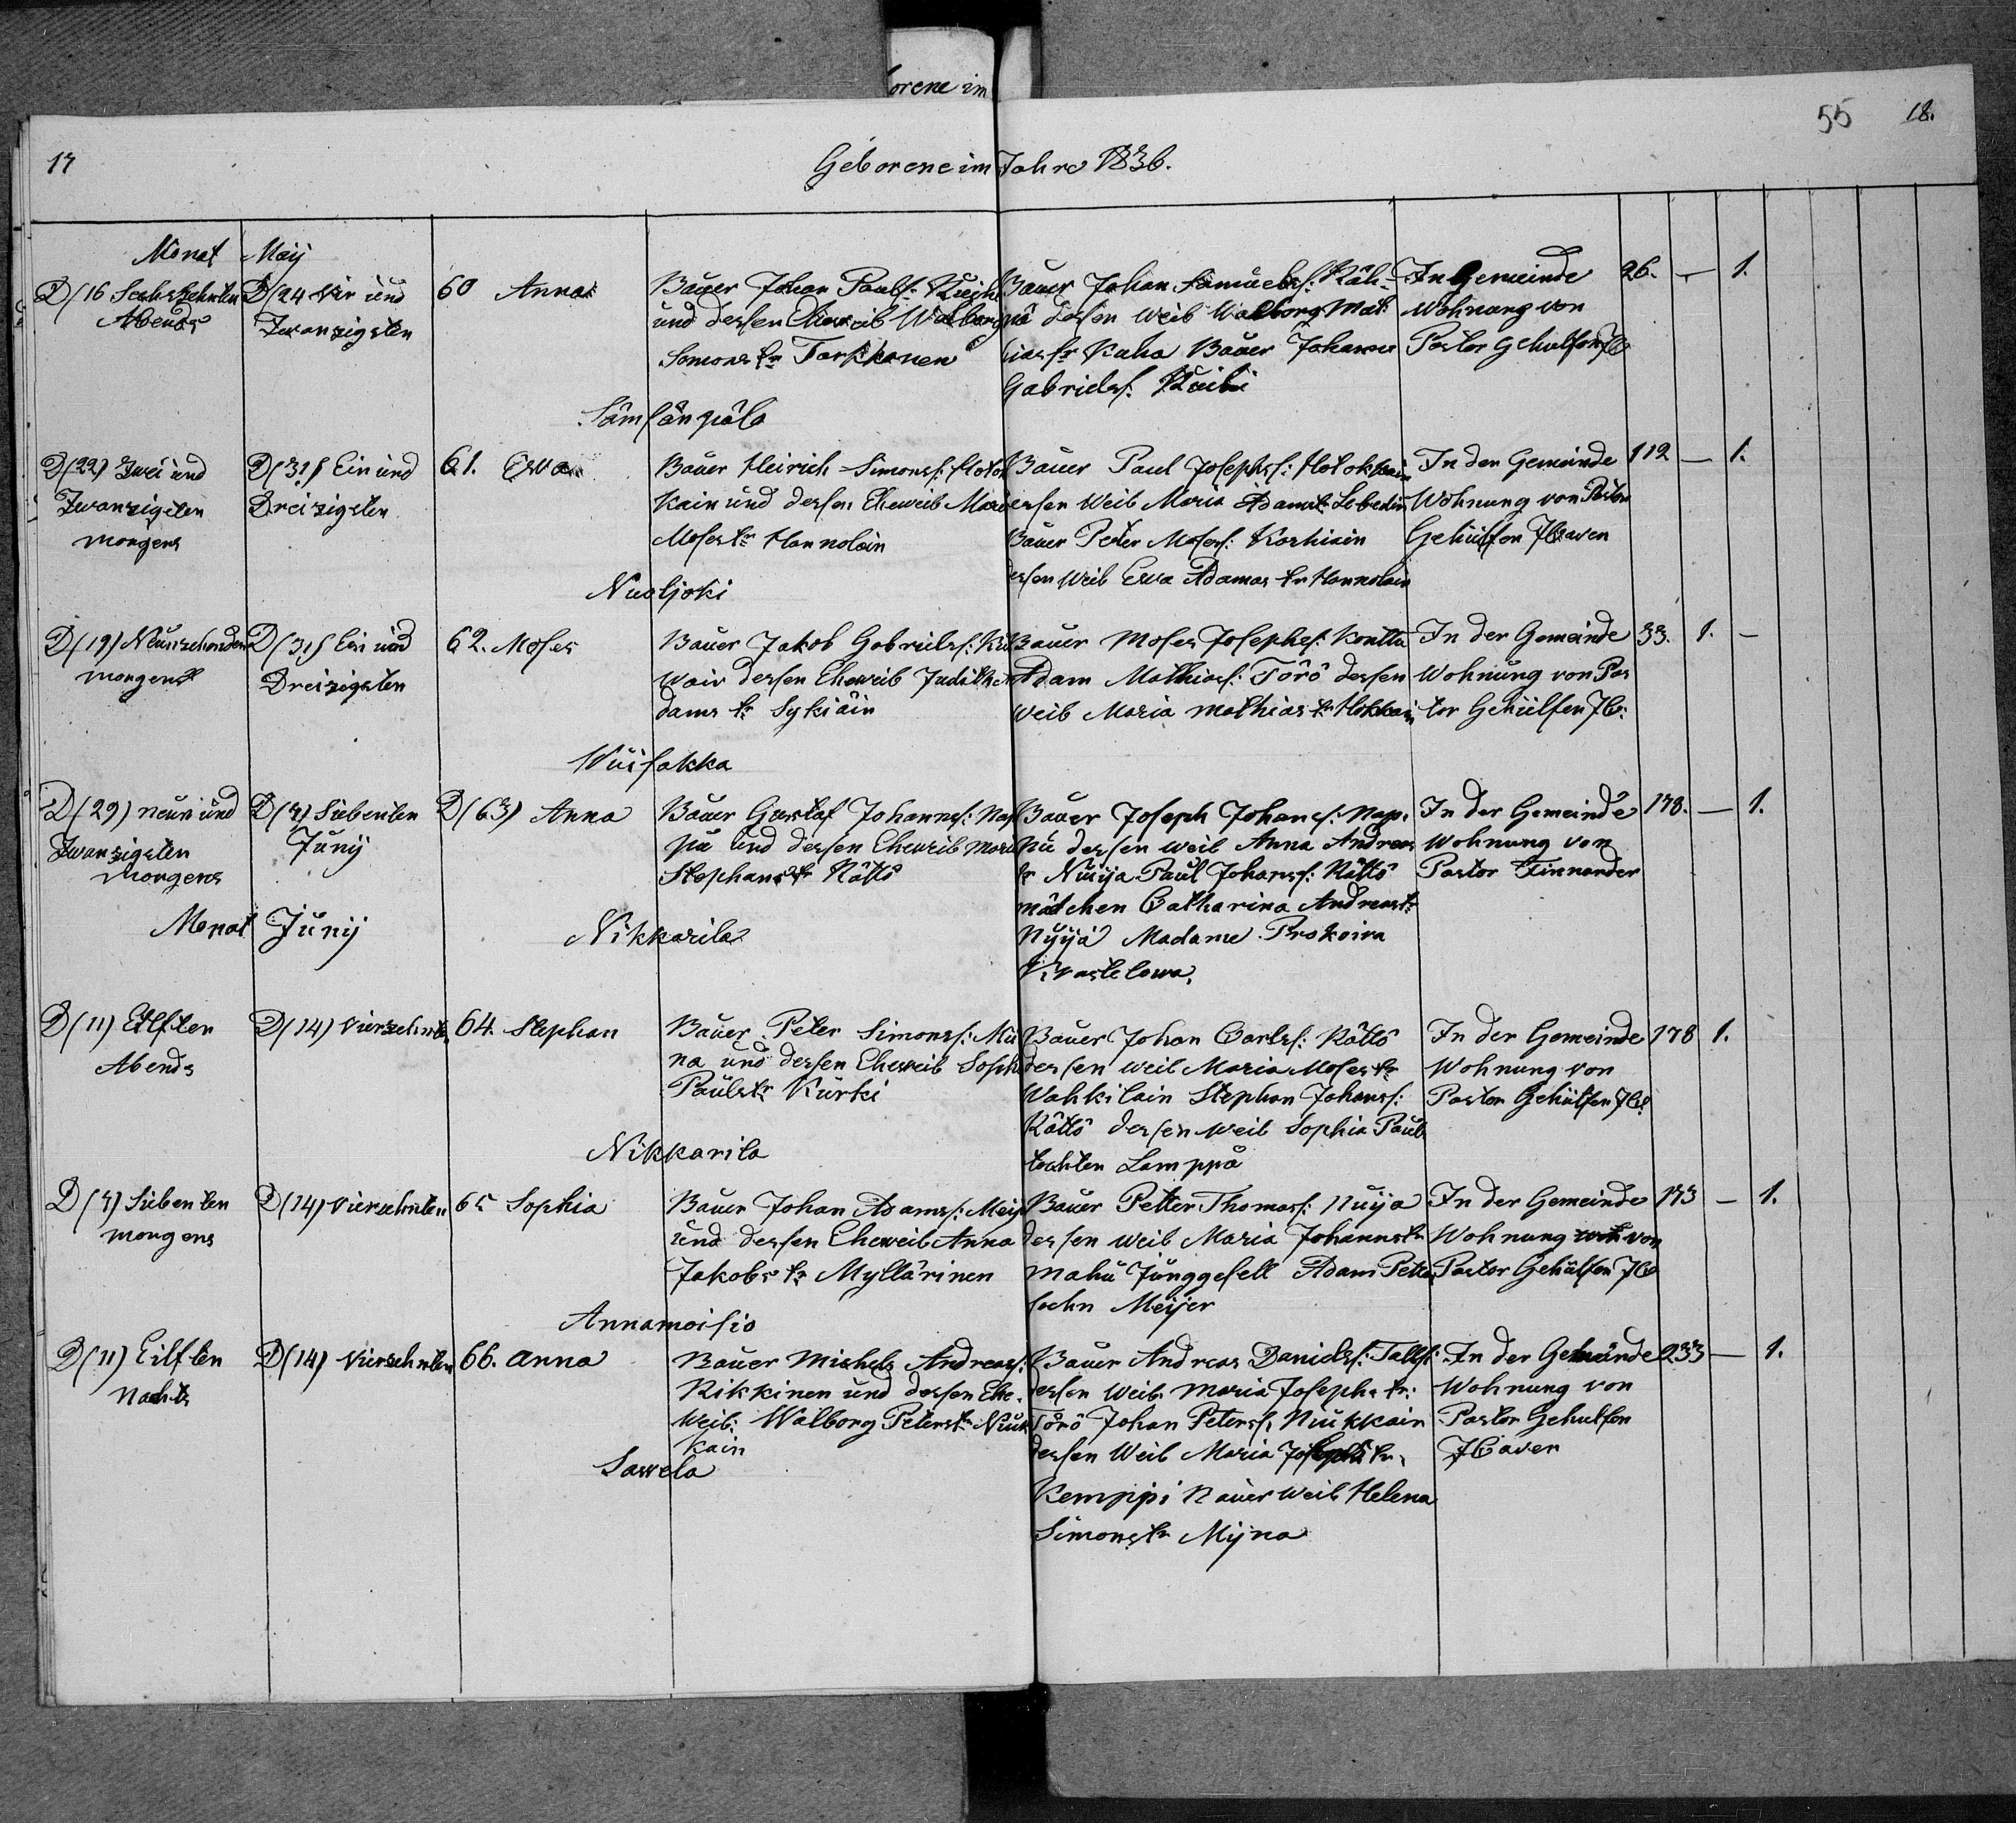 orene im
17
Geborene im Jahre 1836.
55 18.
Monat Maij
D (16 Sechszehnten
Abends
D (24 Vir und
Zwanzigsten
60 Anna
Bauer Johan Pauls:
und dessen Eheweib Walborg
Simons tr Tarkkanen
Bauer Johan Samuels:
dessen Weib Walborg Mat
hias tr Kaha Bauer Johann
Gabriels:
In Gemeinde
Wohnung von
Pastor Gehulfen Hb
26. — 1.
D (22) Zwei und
Zwanzigsten
morgens
D (31) Ein und
Dreizigsten
61. Eva
Bauer Heirich Simons: Hotok
Kain und dessen Eheweib Mari
Moses tr Hannolain
Bauer Paul Josephs: Hotokkain
essen Weib Maria Adams tr
Bauer Peter Moses: Karhiain
dessen Weib Eva Adamas tr Hannolain
In der Gemeinde
Wohnung von Pastor
Gehülfen
112 — 1.
Nualjoki
D (19) Neunzehnden
morgens
D (31) Ein und
Dreizigsten
62. Moses
Bauer Jakob Gabriels:
wain dessen Eheweib Judith A
dams tr Sykiäin
Bauer Moses Josephs: Konttu
Adam Mathias: Törö dessen
Weib Maria mathias tr Hokkain
In der Gemeinde
Wohnung von Pas
tor Gehülfen Hb:
33. 1. —
D (29) neun und
Zwanzigsten
Morgens
D (7) Siebenten
Junij
D (63) Anna
Bauer Gustaf Johanns: Nap
pu und dessen Eheweib Mari
Stephans tr Rättö
Bauer Joseph Johans: Nap.
pu dessen weib Anna Andreas
tr Nuija Paul Johans: Rättö
mädchen Catharina Andreas tr
Nyijä Madame Proskoiva
In der Gemeinde
Wohnung von
Pastor Finnander
178. — 1.
Monat Junij
Nikkarila
D (11) Elften
Abends
D (14) Vierzehnten
64. Stephan
Bauer Peter Simons: Mü
na und dessen Eheweib Soph
Pauls tr Kurki
Bauer Johan Carls: Rättö
dessen weib Maria Moses tr
Wahkilain Stephan Johans:
Rättö dessen Weib Sophia Pauls
tochter Lamppä
In der Gemeinde
Wohnung von
Pastor Gehülfen Hb
178 1.
Nikkarila
D (7) Siebenten
morgens
D (14) Vierzehnten
65 Sophia
Bauer Johan Adams: Meij
und dessen Eheweib Anna
Jakobs tr Myllärinen
Bauer Petter Thomas: Nuija
dessen weib Maria Johanns tr
Mahu Junggesell Adam Petter
sohn Meijer
In der Gemeinde
Wohnung von
Pastor Gehülfen Hb
173 — 1.
Annamoisio
D (11) Eilften
Nachts
D (14) Vierzehnten
66. Anna
Bauer Michels Andreas:
Rikkinen und dessen Ehe
weib: Walborg Peters tr Niuk
kain
Bauer Andreas Daniels: Talls:
dessen Weib Maria Josephs tr:
Törö Johan Peters: Niukkain
dessen Weib Maria Josephs tr.
Kemppi Bauer Weib Helena
Simons tr Mijna
In der Gemeinde
Wohnung von
Pastor Gehulfen
233 — 1.
Sawela